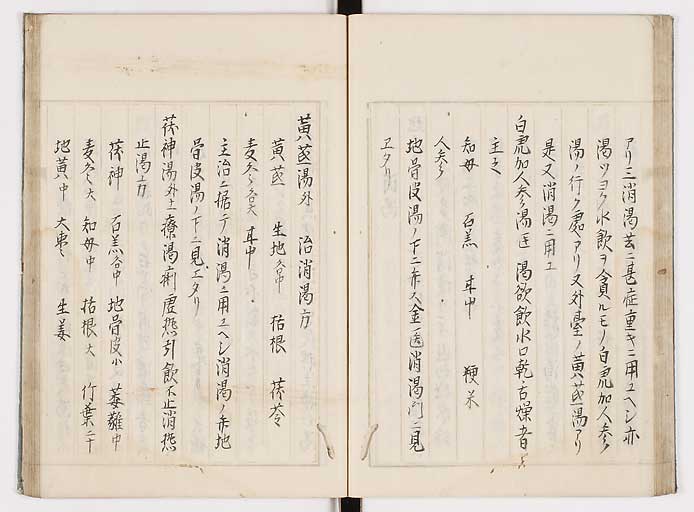 アリ三消渇共ニ甚症重キニ用ユヘシ亦
渇ツヨク水飲ヲ貪ルモノ白虎加人参
湯ノ行ク処アリ又外臺ノ黄芪湯アリ
是又消渇ニ用ユ
白虎加人参湯 渇欲飲水口乾舌燥者
主之
知母 石羔 甘中 粳米
人参
地骨皮湯ノ下ニ亦又金匱消渇門ニ見
エタリ
黄芪湯外 治消渇方
黄芪 生地各中 栝根 茯苓
麦冬各大 甘中
主治ニ据テ消渇ニ用ユヘシ消渇ノ赤地
骨皮湯ノ下ニ見エタリ
茯神湯外土療渇痢虚熱引飲不止消熱
止渇方
茯神 石羔各中 地骨皮小 萎蕤中
麦冬大 知母中 栝根大 竹葉二十
地黄中 大棗 生姜